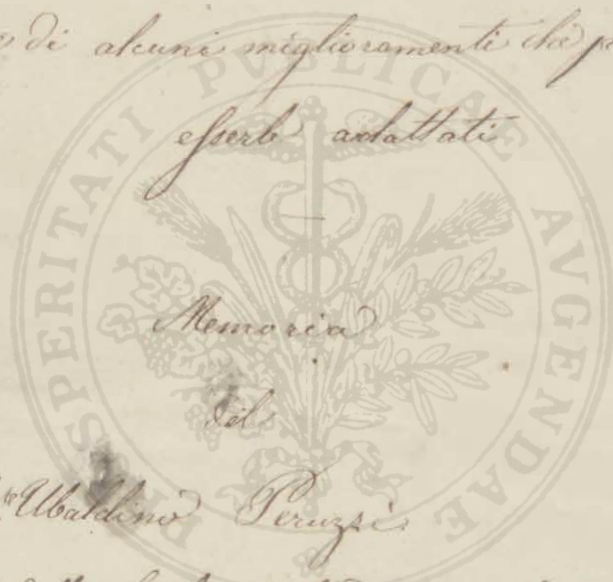 di alcuni miglioramenti che
esserle adattati
Memoria
del
Ubaldino Peruzzi
PROSPERITATI PVBLICAE AVGENDAE